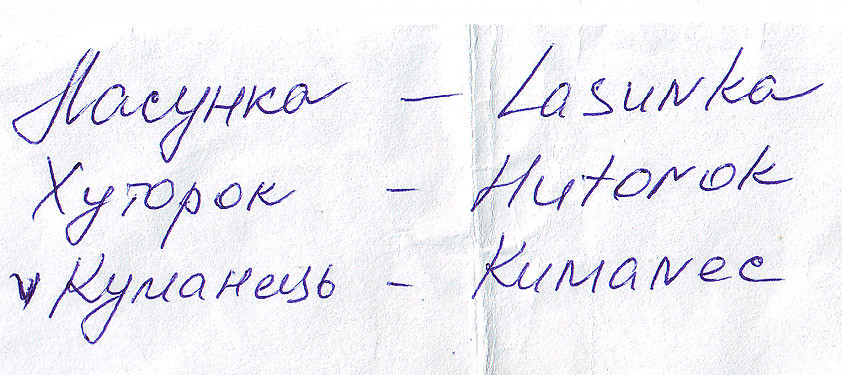 Ласунка - Lasunka
Хуторок - Hutorok
v Куманець - Kumanec